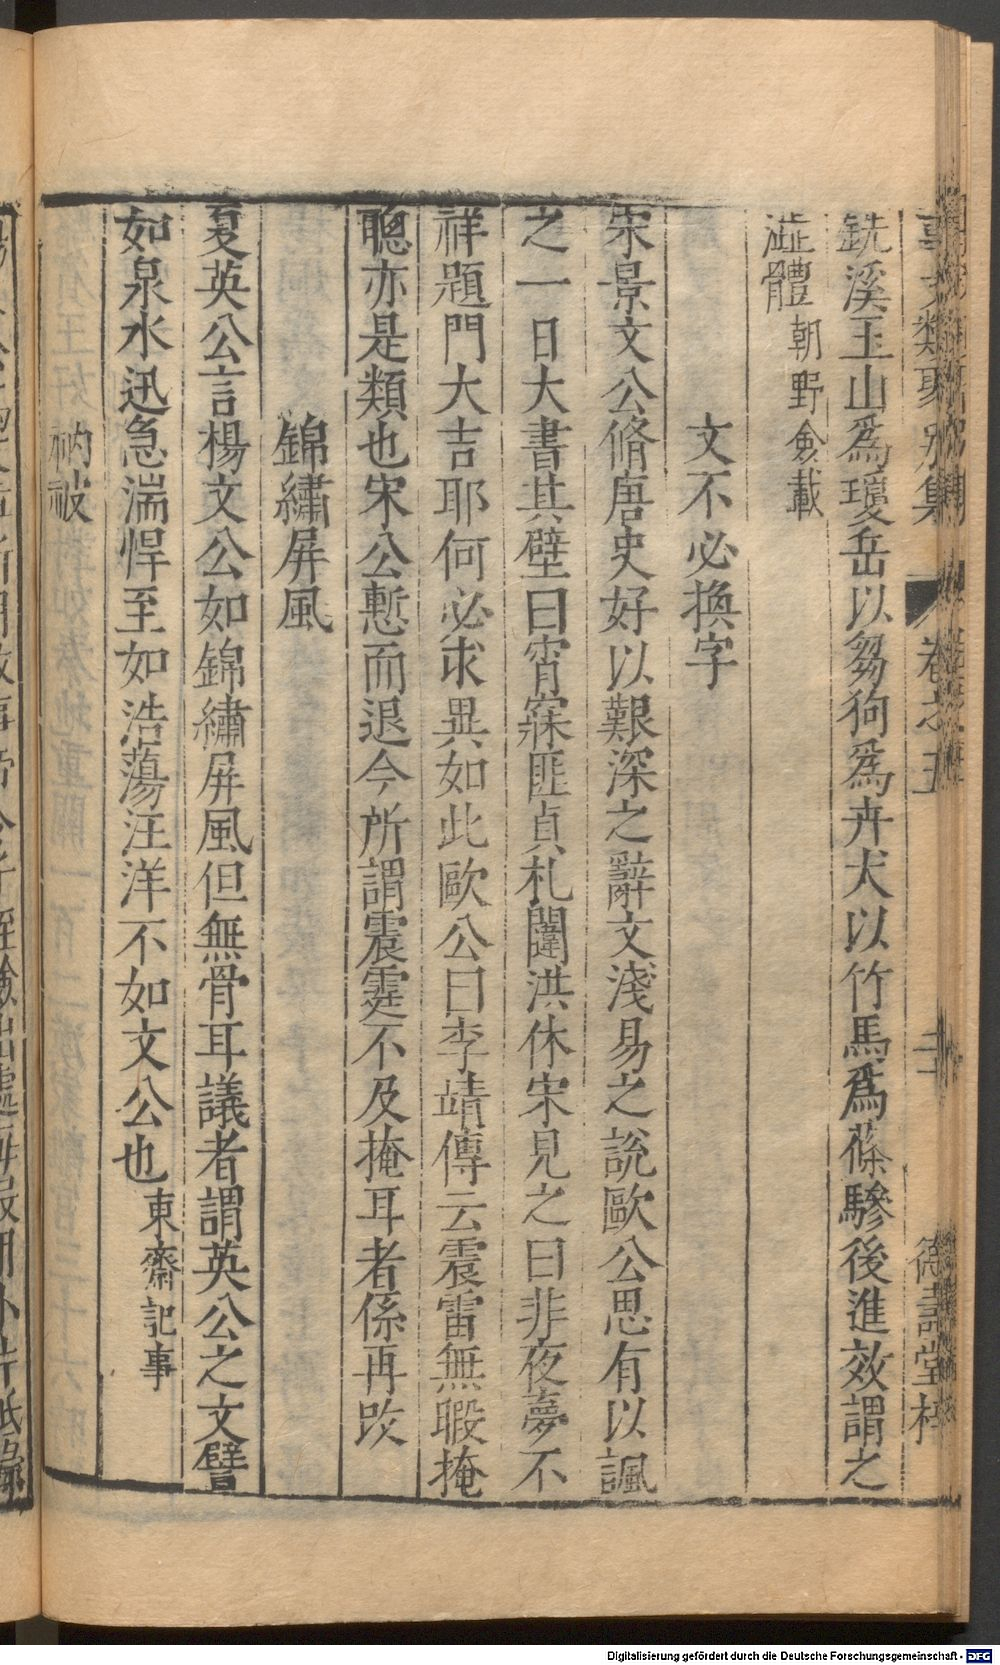 銑溪玉山爲瓊岳以芻狗爲卉犬以竹馬爲篠驂後進效謂之
澁體朝野僉載
文不必換字
宋景文公脩唐史好以艱深之辭文淺易之說歐公思有以諷
之一日大書其壁曰宵寐匪貞札闥洪休宋見之曰非夜夢不
祥題門大吉耶何必求異如此歐公曰李靖傳云震雷無暇掩
聰亦是類也宋公慙而退今所謂震霆不及掩耳者係再改
錦繡屏風
夏英公言楊文公如錦繡屏風但無骨耳議者謂英公之文譬
如泉水迅急湍悍至如浩蕩汪洋不如文公也東齋記事
衲被
Digitalisierung gefördert durch die Deutsche Forschungsgemeinschaft - DFG